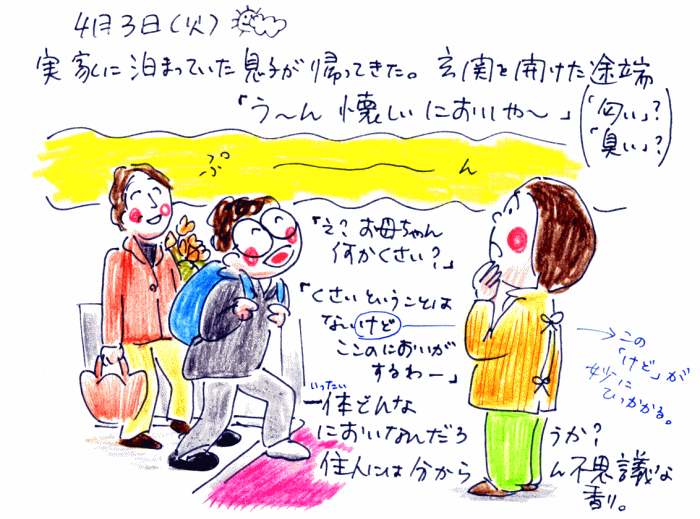 4月3日(火)
実家に泊まっていた息子が帰ってきた。玄関を開けた途端
「う〜ん 懐しいにおいしや〜」(「匂い」?
「臭い」?)
ぷ〜ん
「え?お母ちゃん
何かくさい?」
「くさいということは
ないけど
ここのにおいが
するわー」
→この
「けど」が
妙に
ひっかかる。
いったい
一体どんな
においなんだろうか?
住人には分からん不思議な
香り。